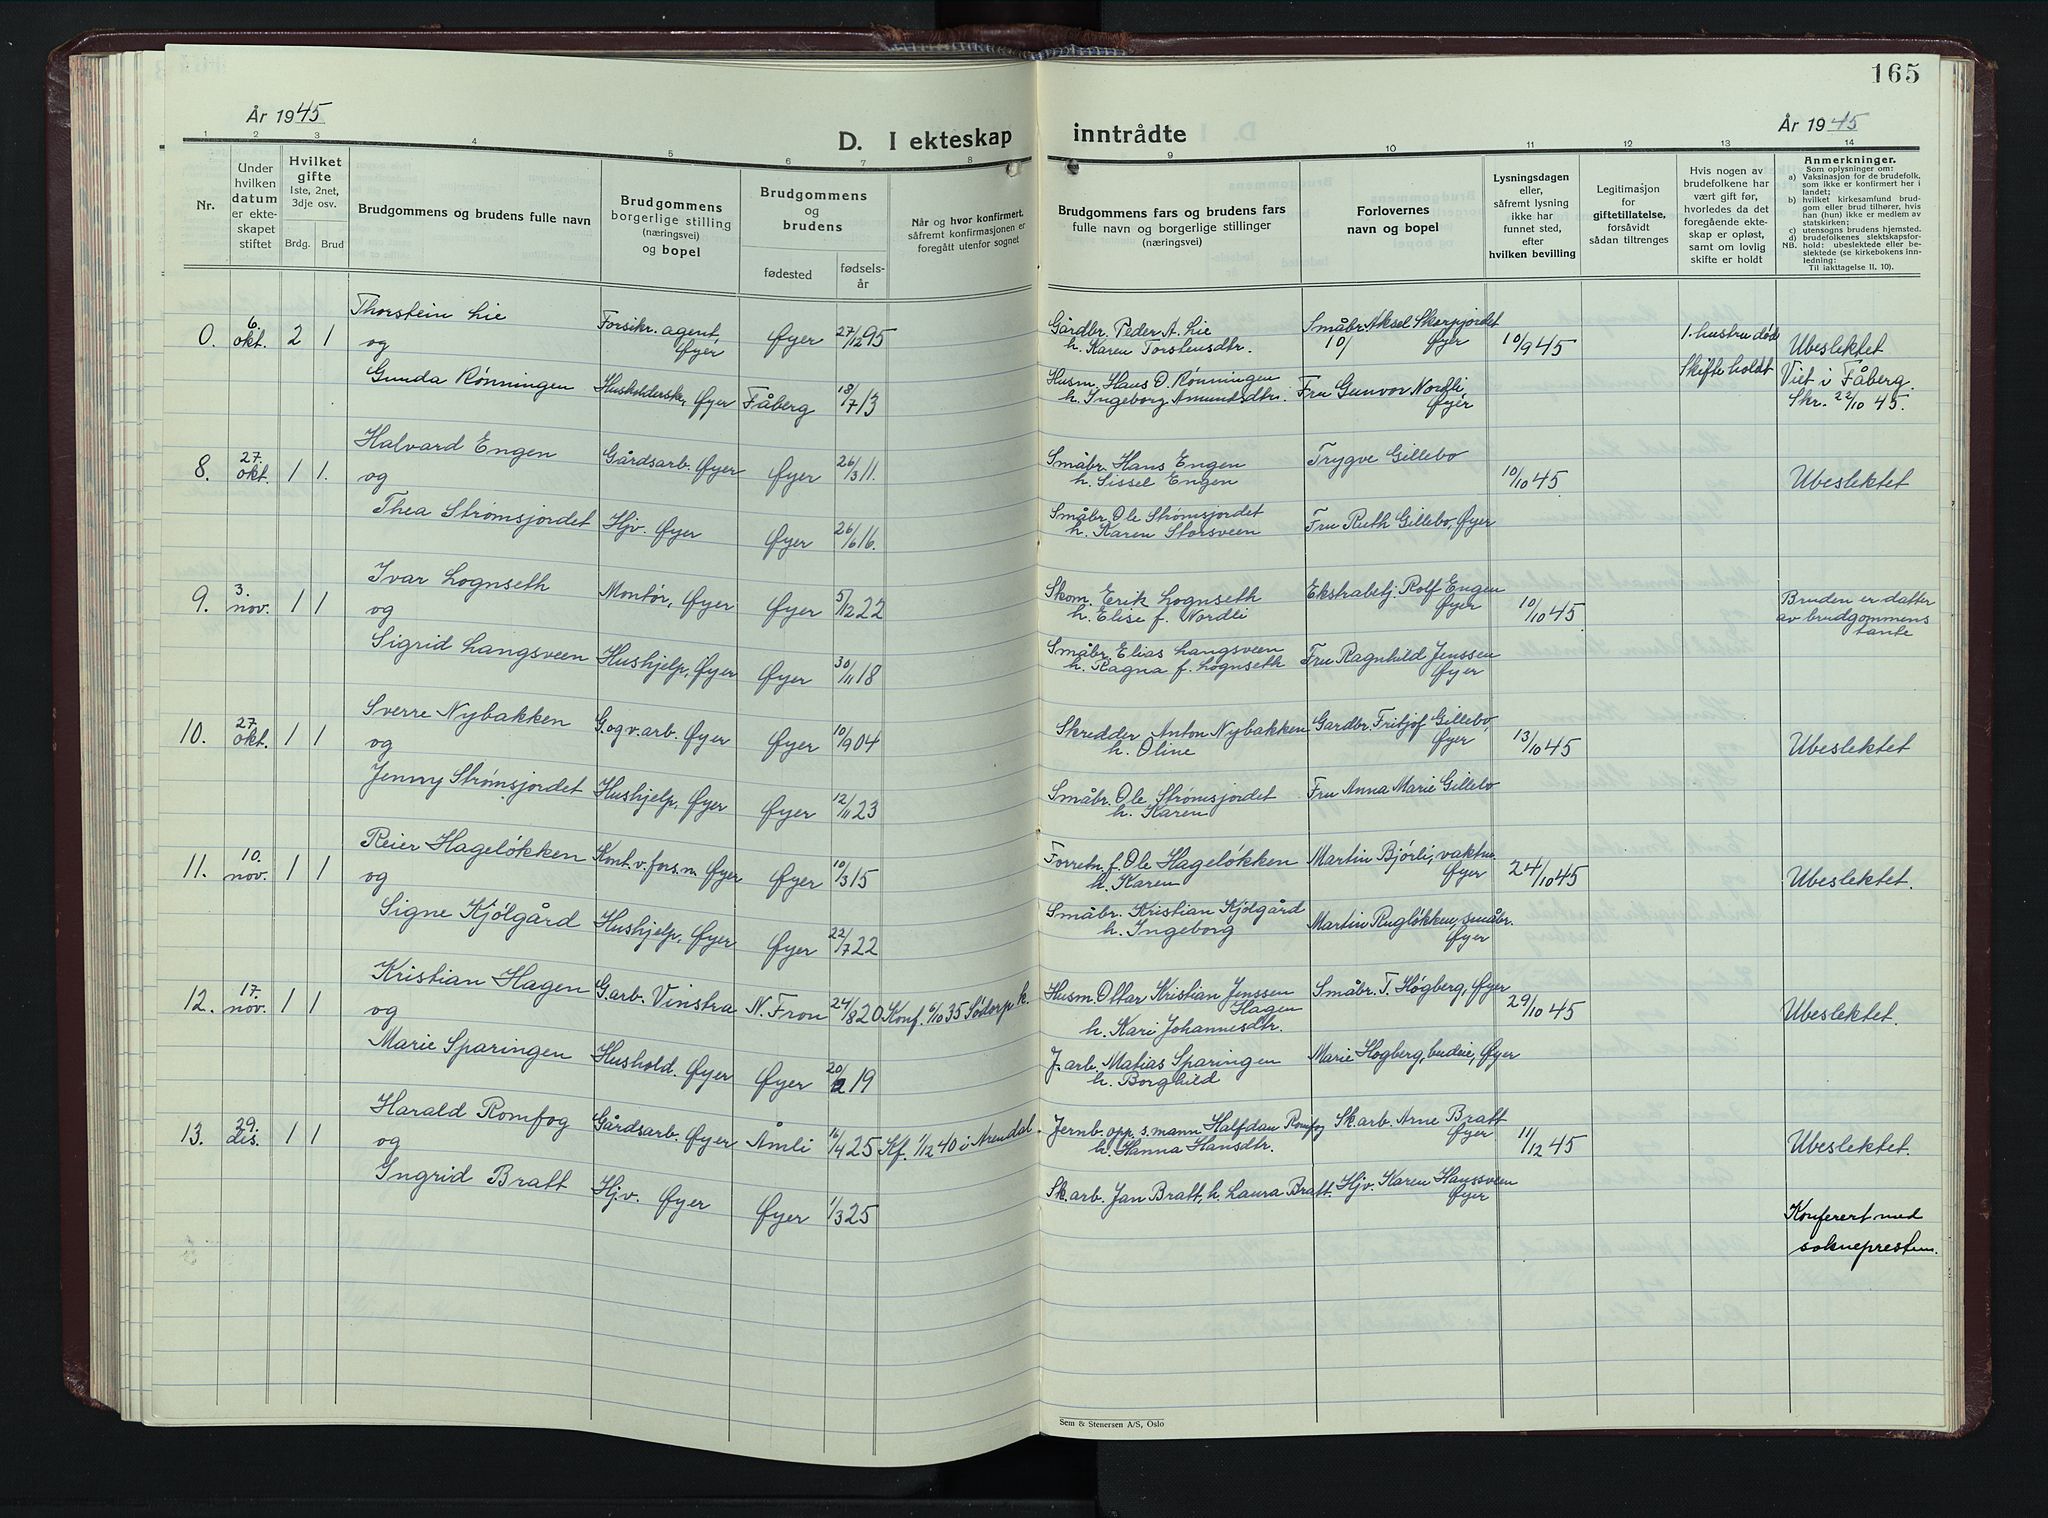 165
År 1945
År 1945
D. I ekteskap inntrådte
1 2 3 4 5 6 7 8 9 10 11 12 13 14
Nr.
Under
hvilken
datum
er ekte-
skapet
stiftet
Hvilket
gifte
1ste, 2net,
3dje osv.
Brdg. Brud
Brudgommens og brudens fulle navn
Brudgommens
borgerlige stilling
(næringsvei)
og bopel
Brudgommens
og
brudens
fødested
fødsels-
år
Når og hvor konfirmert,
såfremt konfirmasjonen er
foregått utenfor sognet
Brudgommens fars og brudens fars
fulle navn og borgerlige stillinger
(næringsvei)
Forlovernes
navn og bopel
Lysningsdagen
eller,
såfremt lysning
ikke har
funnet sted,
efter
hvilken bevilling
Legitimasjon
for
giftetillatelse,
forsåvidt
sådan tiltrenges
Hvis nogen av
brudefolkene har
vært gift før,
hvorledes da det
foregående ekte-
skap er opløst,
samt om lovlig
skifte er holdt
Anmerkninger.
Som oplysninger om:
a) Vaksinasjon for de brudefolk,
som ikke er konfirmert her i
landet;
b) hvilket kirkesamfund brud-
gom eller brud tilhører, hvis
han (hun) ikke er medlem av
statskirken;
c) utensogns brudens hjemsted.
d) brudefolkenes slektskapsfor-
NB. hold: ubeslektede eller be-
slektede (se kirkebokens inn-
ledning:
Til iakttagelse II. 10).
0. 6. okt. 2 1
Thorstein Lie
og
Gunda Rønningen
Forsikr. agent,
Øyer
Husholderske, Øyer
Øyer 27/12 95
Fåberg 18/7 13
Gårdbr. Peder A. Lie
h. Karen Torstensdtr.
Husm. Hans O. Rønningen
h. Ingeborg Amundsdtr.
Småbr. Aksel Skarpjordet
10/ Øyer
Fru Gunvor Nordli
Øyer
10/9 45
1. hustru død
Skifte holdt
Ubeslektet
Viet i Fåberg.
Skr. 22/10 45.
8. 27. okt. 1 1.
Halvard Engen
og
Thea Strømsjordet
Gårdsarb. Øyer
Hjv. Øyer
Øyer 26/3 11.
Øyer 26/6 16.
Småbr. Hans Engen
h. Sissel Engen
Småbr. Ole Strømsjordet
h. Karen Storsveen
Trygve Gillebo
Fru Ruth Gillebo, Øyer
10/10 45
Ubeslektet
9. 3. nov. 1 1
Ivar Lognseth
og
Sigrid Langsveen
Montør, Øyer
Hushjelp, Øyer
Øyer 5/12 22
Øyer 30/11 18
Skom. Erik Lognseth
h. Elise f. Nordli
Småbr. Elias Langsveen
h. Ragna f. Lognseth
Ekstrabetj. Rolf Engen
Øyer
Fru Ragnhild Jenssen
Øyer
10/10 45
Bruden er datter
av brudgommens
tante
10. 27. okt. 1 1
Sverre Nybakken
og
Jenny Strømsjordet
G. og v. arb. Øyer
Hushjelp. Øyer
Øyer 10/9 04
Øyer 12/11 23
Skredder Anton Nybakken
h. Oline
Småbr. Ole Strømsjordet
h. Karen
Gardbr. Fritjof Gillebo,
Øyer
Fru Anna Marie Gillebo
13/10 45
Ubeslektet
11. 10. nov. 1 1
Reier Hageløkken
og
Signe Kjølgård
Kont. v. fors. n. Øyer
Hushjelp. Øyer
Øyer 10/3 15
Øyer 22/7 22
Forretn. f. Ole Hageløkken
h. Karen
Småbr. Kristian Kjølgård
h. Ingeborg
Martin Bjørli, vaktm.
Øyer
Martin Rugløkken, småbr.
Øyer
24/10 45
Ubeslektet.
12. 17. nov. 1 1
Kristian Hagen
og
Marie Sparingen
G. arb. Vinstra
Hushold. Øyer
N. Fron 24/8 20
Øyer 20/2 19
Konf. 6/10 35 Sødorp k.
Husm. Ottar Kristian Jenssen
Hagen
h. Kari Johannesdtr.
J. arb. Matias Sparingen
h. Borghild
Småbr. T. Høgberg, Øyer
Marie Høgberg, budeie, Øyer
29/10 45
Ubeslektet.
13. 29. des. 1 1
Harald Romfog
og
Ingrid Bratt
Gårdsarb. Øyer
Hjv. Øyer
Åmli 16/4 25
Øyer 1/3 25
Kf. 1/12 40 i Arendal.
Jernb. opp. s. mann Halfdan Romfog
h. Hanna Hansdtr.
Sk. arb. Jan Bratt, h. Laura Bratt.
Sk. arb. Arne Bratt
Øyer
Hjv. Karen Haussveen
Øyer
11/12 45
Ubeslektet.
Konferert med
soknepresten.
Sem & Stenersen A/S, Oslo